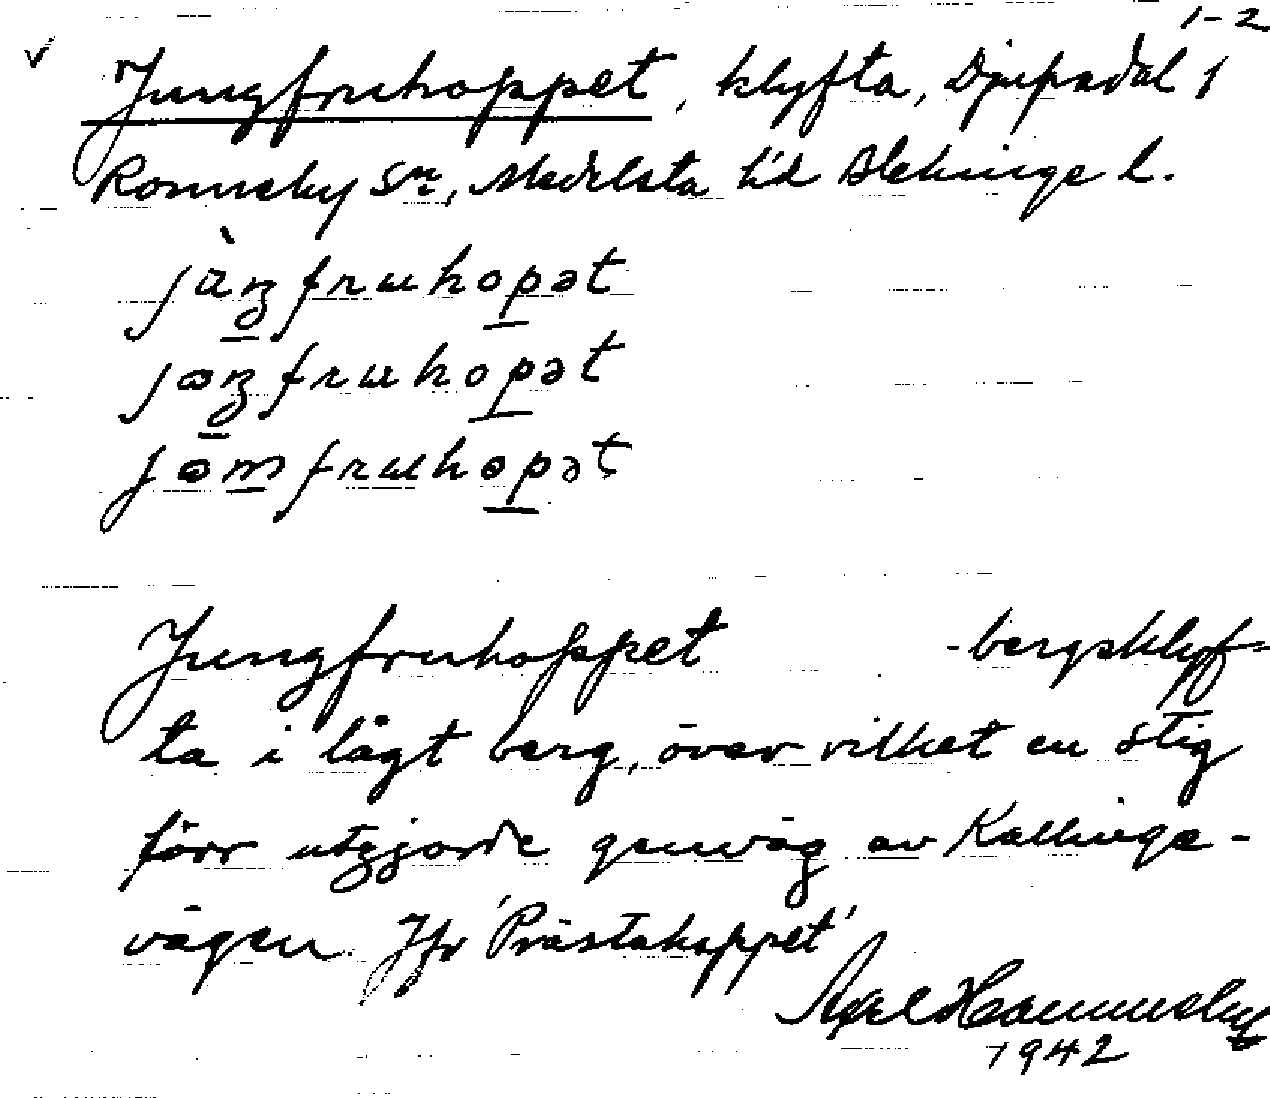 1-2
Jungfruhoppet, klyfta, Djupadal 1
Ronneby Sn, Medelsta h:d Blekinge l.
jàŋfruhopət
jɵŋfruhopət
jɵmfruhopət
Jungfruhoppet -bergsklyf-
ta i lågt berg, över vilket en stig
förr utgjorde genväg av Kallinge-
vägen. Jfr 'Prästahoppet'
Axel
1942